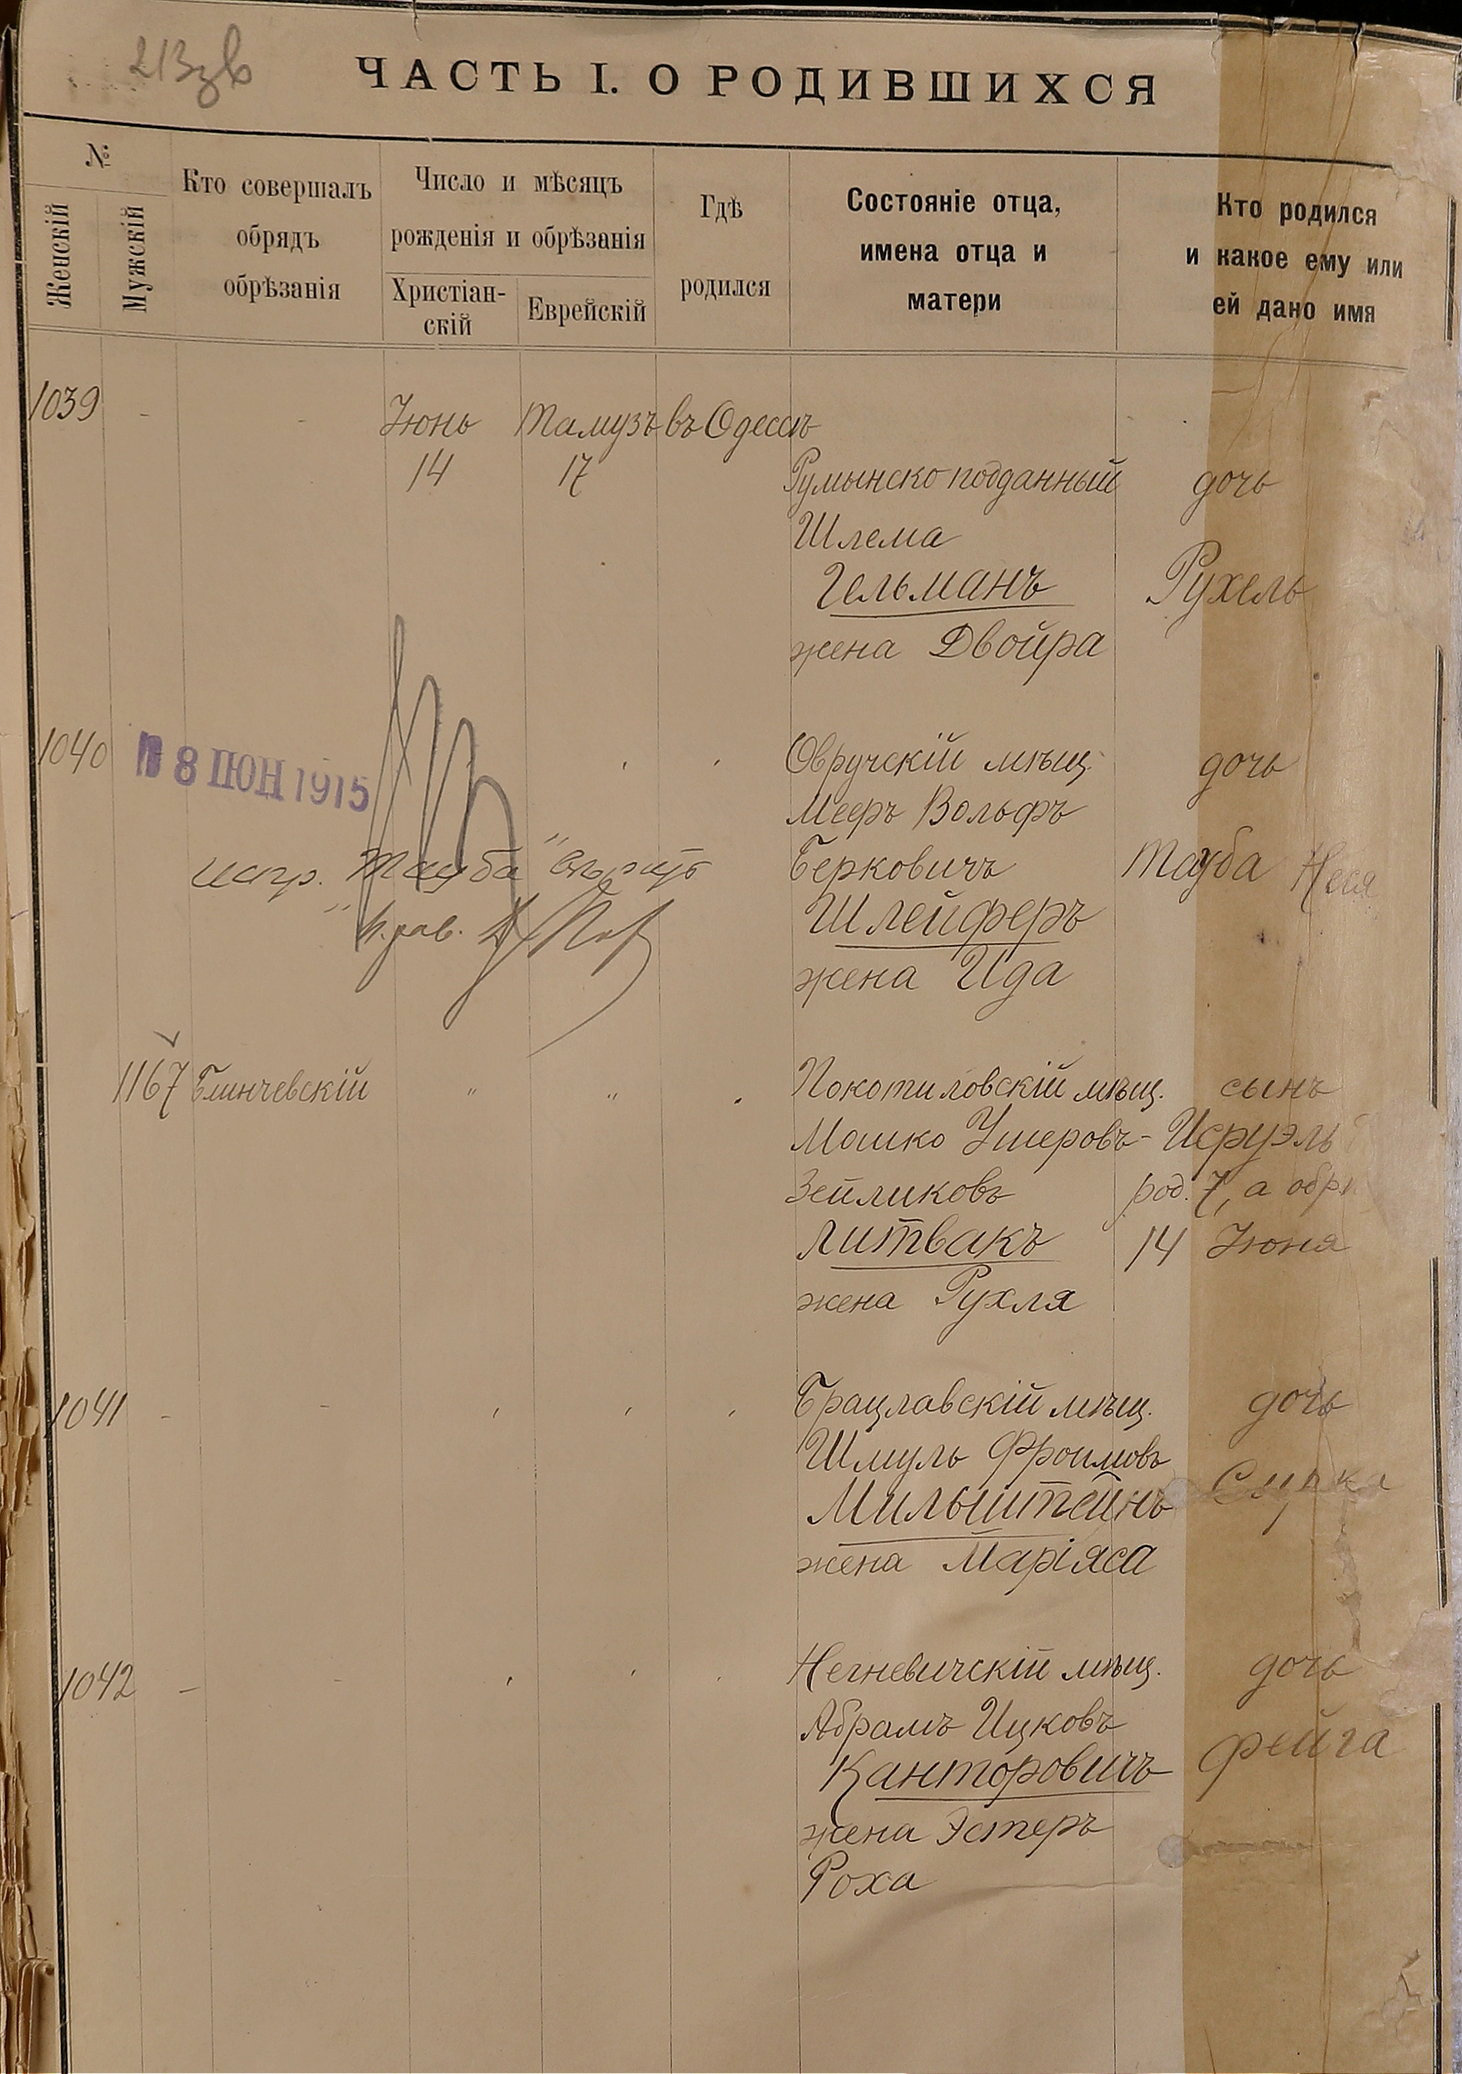 213 зв
ЧАСТЬ I. О РОДИВШИХСЯ
№
Женскій
Мужскій
Кто совершалъ
обрядъ
обрѣзанія
Число и мѣсяцъ
рожденія и обрѣзанія
Христіан-
скій
Еврейскій
Гдѣ
родился
Состояніе отца,
имена отца и
матери
Кто родился
и какое ему или
ей дано имя
1039 - - Іюнь Тамузъ въ Одессѣ
14 17 Румынскоподданный дочь
Шлема
Гельманъ Рухель
жена Двойра
1040 Овручскій мѣщ. дочь
8 ІЮН 1915
Мееръ Вольфъ
испр. "Тауба" вѣрить Берковичъ Тауба Неся
Шлейферъ
жена Ида
1167 Блинчевскій " " Покотиловскій мѣщ. сынъ
Мошко Ушеровъ- Исруэль
Зейликовъ род. 7, а обр
Литвакъ 14 Іюня
жена Рухля
1041 - - Брацлавскій мѣщ. дочь
Шмуль Фроимовъ
Мильштейнъ Сурка
жена Маріяса
1042 - - Негневичскій мѣщ. дочь
Абрамъ Ицковъ
Канторовичъ Фейга
жена Эстеръ
Роха